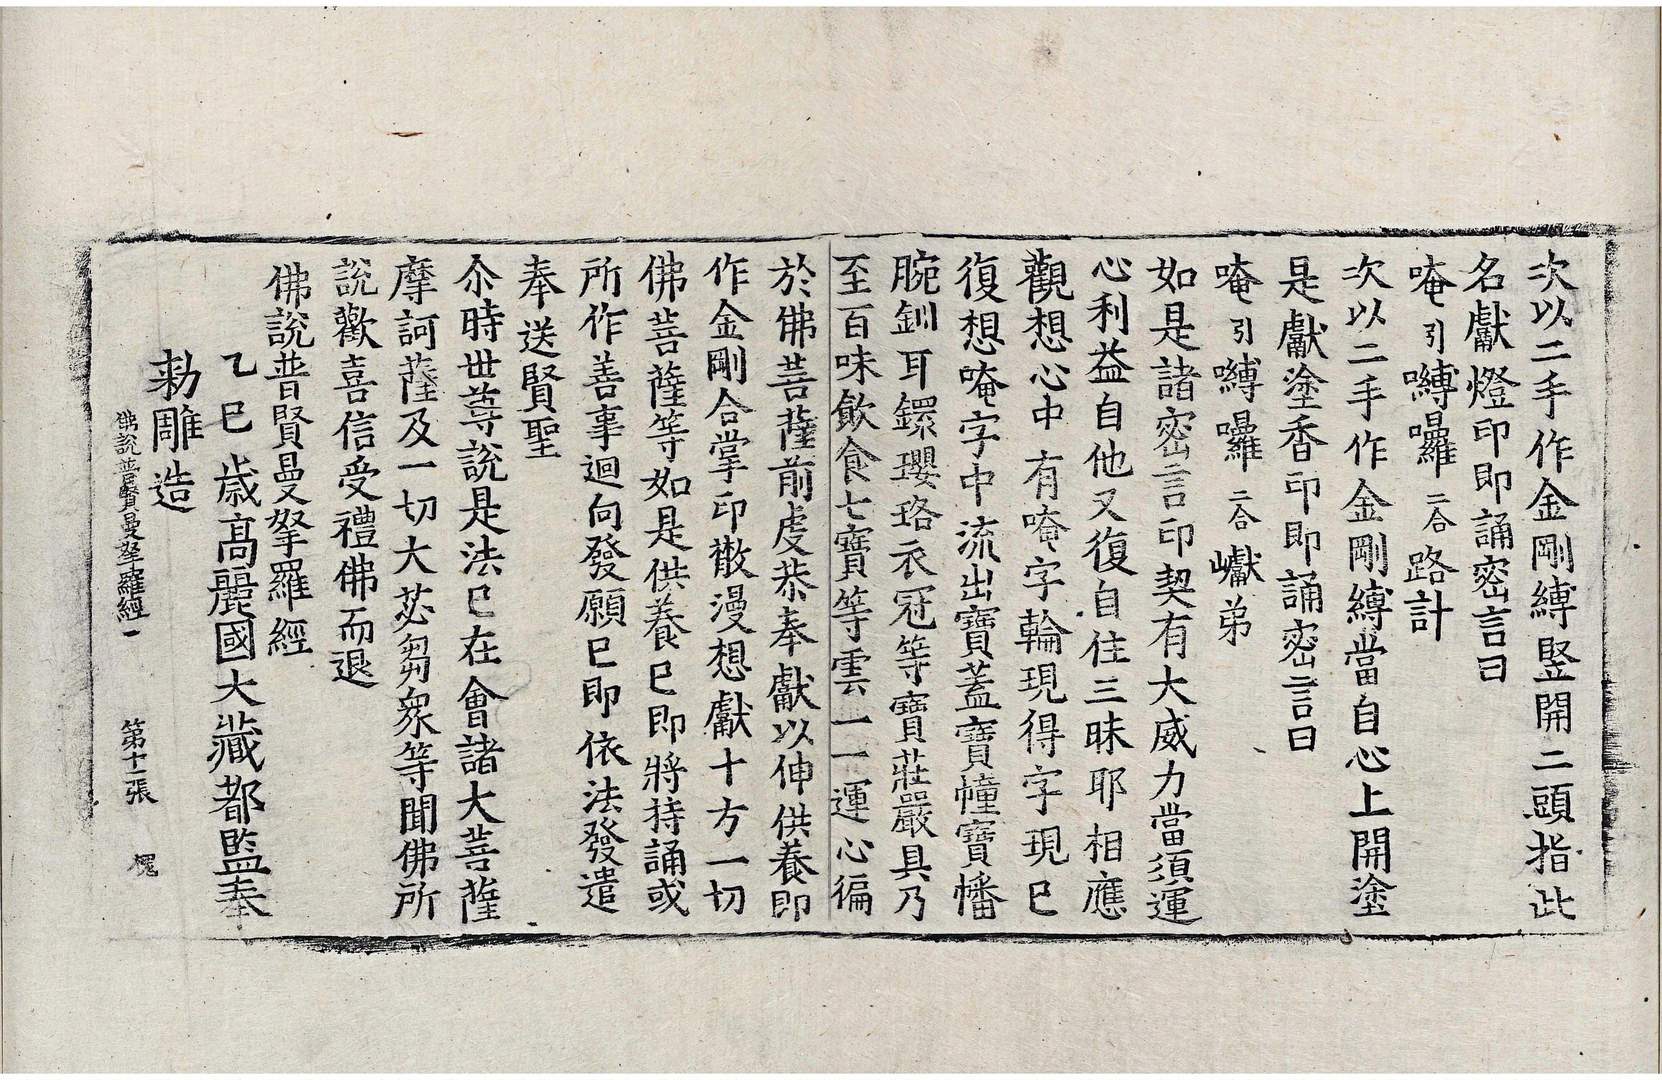 次以二手作金剛縛竪開二頭指此
名獻燈印即誦密言曰
唵引嚩囉二合路計
次以二手作金剛縛當自心上開塗
是獻塗香印即誦密言曰
唵引嚩囉二合巘弟
如是諸密言印契有大威力當須運
心利益自他又復自住三昧耶相應
觀想心中有唵字輪現得字現已
復想唵字中流出寶蓋寶幢寶幡
腕釧耳鐶瓔珞衣冠等寶莊嚴具乃
至百味飲食七寶等雲一一運心徧
於佛菩薩前虔恭奉獻以伸供養即
作金剛合掌印散漫想獻十方一切
佛菩薩等如是供養已即將持誦或
所作善事迴向發願已即依法發遣
奉送賢聖
尒時世尊說是法已在會諸大菩薩
摩訶薩及一切大苾芻衆等聞佛所
說歡喜信受禮佛而退
佛說普賢曼拏羅經
乙巳歲高麗國大藏都監奉
勑雕造
佛說普賢曼拏羅經一 第十一張 槐